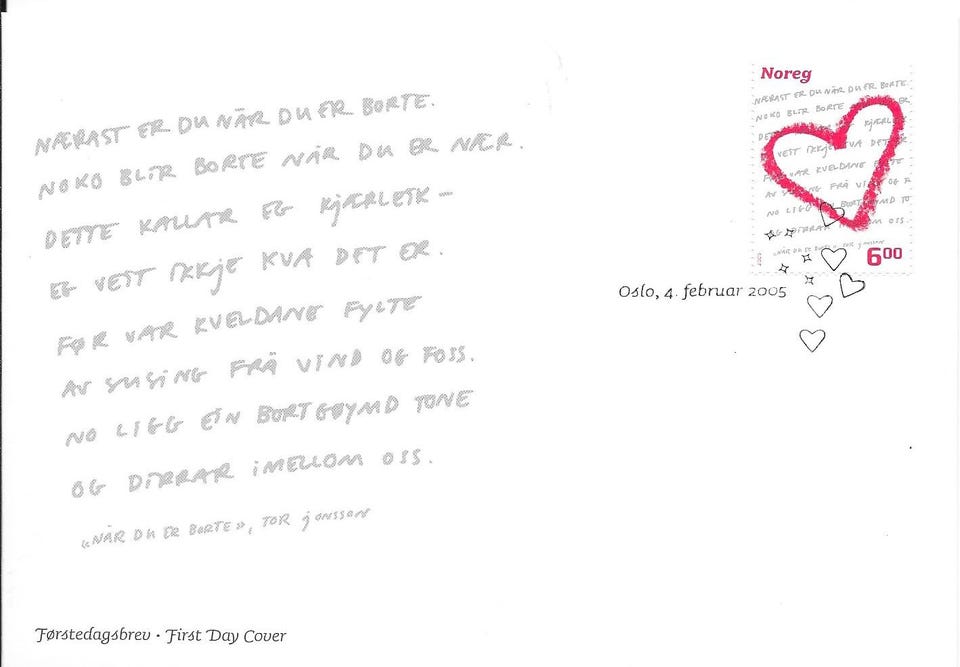 NÆRAST ER DU NÅR DU ER BORTE.
NOKO BLIR BORTE NÅR DU ER NÆR.
DETTE KALLAR EG KJÆRLEIK –
EG VEIT IKKJE KVA DET ER.
FØR VAR KVELDANE FYLTE
AV SUSING FRÅ VIND OG FOSS.
NO LIGG EIN BORTGØYMD TONE
OG DIRRAR IMELLOM OSS.
«NÅR DU ER BORTE», TOR JONSSON
Noreg
NÆRAST ER DU NÅR DU ER BORTE.
NOKO BLIR BORTE ER
KJÆRL
VEIT IKKJE KVA DET
VAR KVELDANE
AV SUSING FRÅ VIND OG F
NO LIGG BORT TO
DIRRAR OSS.
«NÅR DU ER BORTE» TOR JONSSON
2005
6.00
Oslo, 4. februar 2005
Førstedagsbrev · First Day Cover